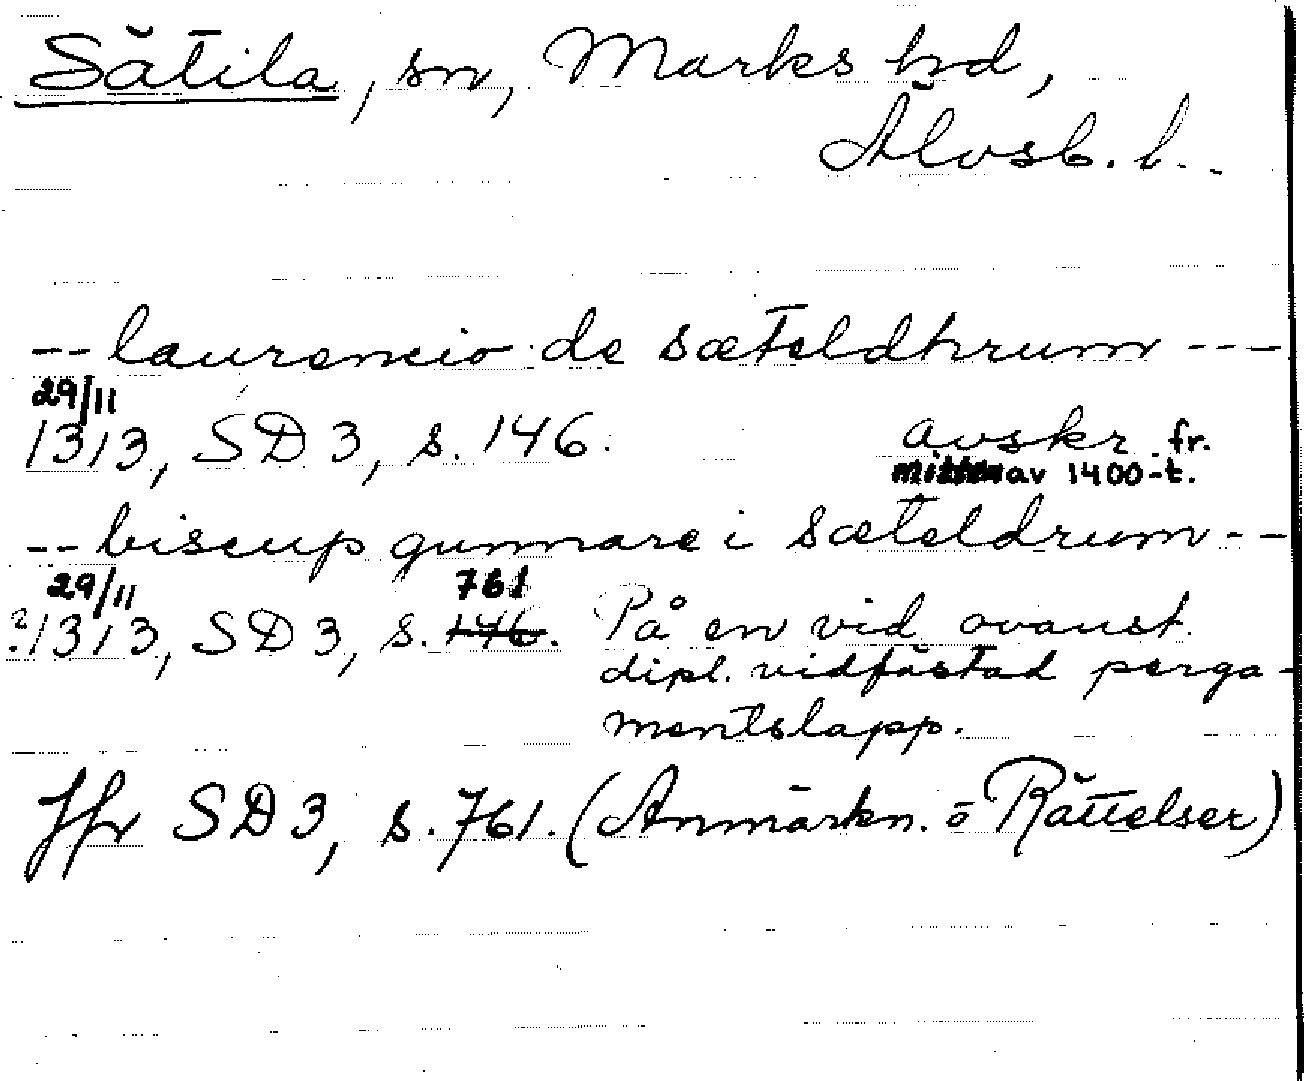 Sätila, sn, Marks hd,
Älvsb. l.
-- laurencio de sæteldhrum ---
29/11
1313, SD 3, s. 146. avskr. fr.
av 1400-t.
-- biscup gunnare i sæteldrum --
29/11 761
?1313, SD 3, s. 146. På en vid ovanst.
dipl. vidfästad perga-
mentslapp.
Jfr SD 3, s. 761. (Anmärkn. o Rättelser)